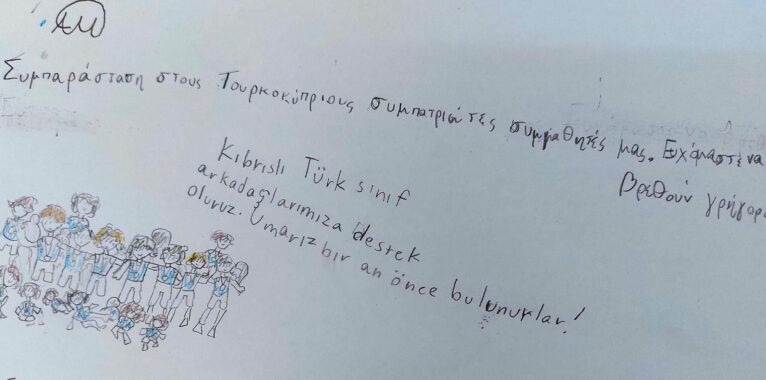 Συμπαράσταση στους Τουρκοκύπριους συμπατριώτες συμμαθητές μας. Ευχόμαστε να
βρεθούν γρήγορα
Kıbrıslı Türk sınıf
arkadaşlarımıza destek
oluruz. Umarız bir an önce bulunurlar!